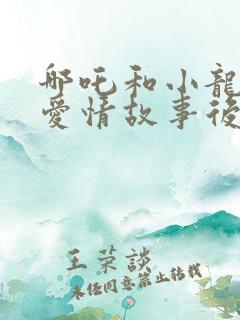 哪吒和小龍
愛情故事後
王荣談
未经同意禁止转载